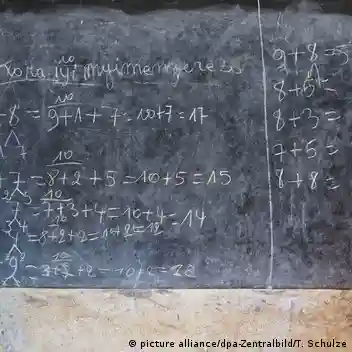 10
Kora iyi myimenyerezo
10
-8 = 9+1+7=10+7=17
10
+7=8+2+5=10+5=15
10
=7+3+4=10+4=14
10
=8+2+2=10+2=12
10
9+8=
8+5=
8+3=
7+5=
8+8=
© picture alliance/dpa-Zentralbild/T. Schulze